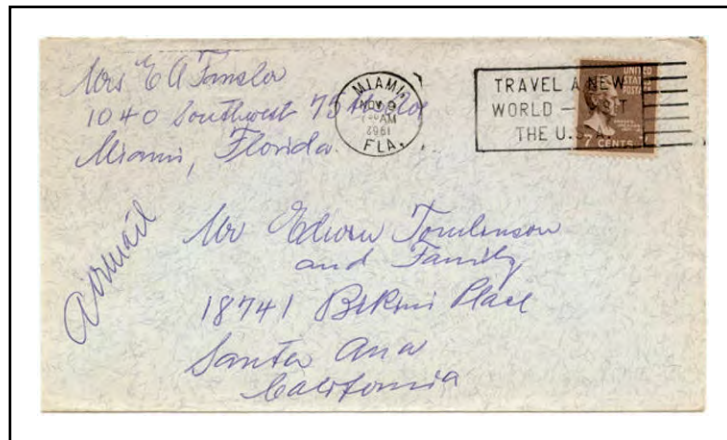 Mrs E A Tansler
1040 Southwest 75
Miami, Florida
MIAMI
NOV 9
AM
FLA.
TRAVEL A NEW
WORLD — VISIT
THE U.S.A.
UNITED
STATES
POSTAGE
7 CENTS
Airmail
Mr Edwin Tomlinson
and Family
18741 Bikini Place
Santa Ana
California